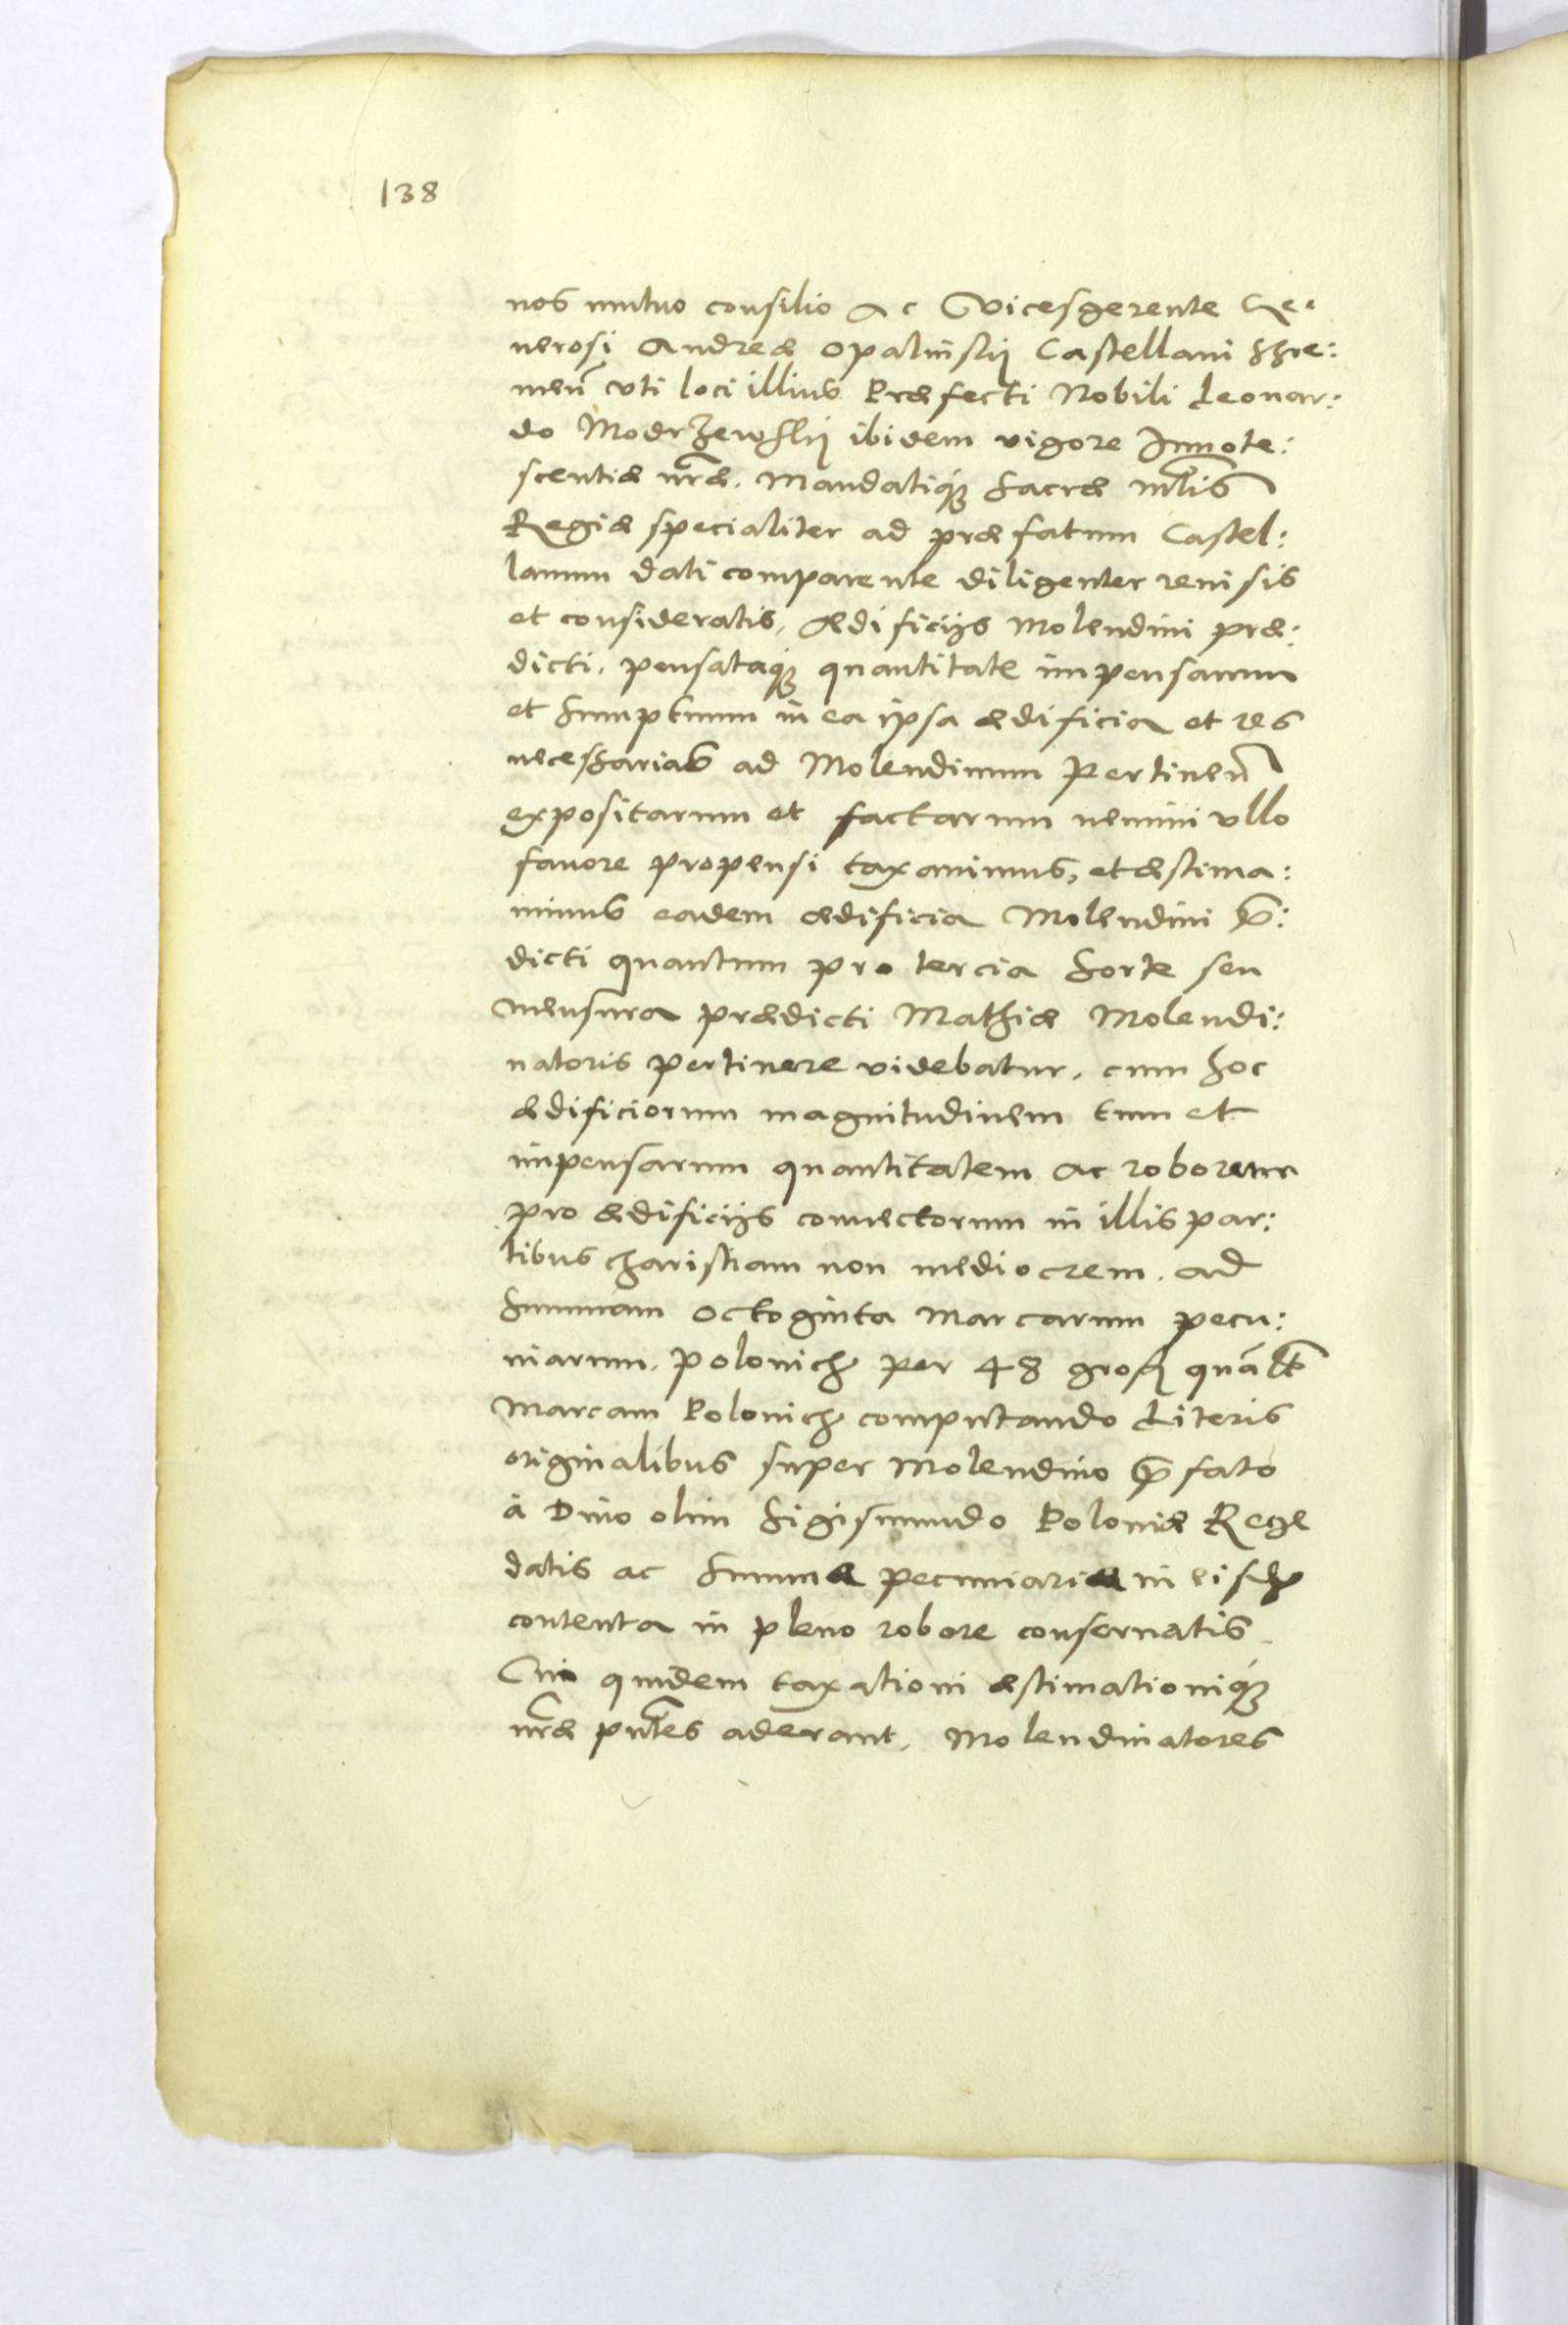 138
nos mutuo consilio Ac Vicesgerente Ge:
nerosi Andreæ Opalinskij Castellani Shre:
meñ vti loci illius Præfecti Nobili Leonar:
do Modrzewskij ibidem vigore Innote:
scentiæ nr̃æ. Mandatiq́ꝫ Sacræ Mt̃is
Regiæ specialiter ad præfatum Castel:
lanum dati comparente diligenter reuisis
et consideratis, ædificijs Molendini præ:
dicti. pensataq́ꝫ quantitate impensarum
et Sumptuum in ea ipsa ædificia et res
necessarias ad Molendinum Pertineñ
expositarum et factarum nemini vllo
fauore propensi taxauimus, et æstima:
uimus eadem ædificia Molendini p̃:
dicti quantum pro tercia Sorte seu
mensura prædicti Mathiæ Molendi:
natoris pertinere videbatur, cum hoc
ædificiorum magnitudinem tum et
impensarum quantitatem ac roborum
pro ædificijs conuectorum in illis par:
tibus charistiam non mediocrem. ad
Summam octoginta Marcarum pecu:
niarum. polonich per 48 gross quãlt
Marcam Polonich computando Literis
originalibus super Molendino p̃fato
à Diuo olim Sigismundo Poloniæ Rege
datis ac Summæ pecuniariæ in eisdẽ
contenta in pleno robore conseruatis.
Cui quidem taxationi æstimationiq́ꝫ
nr̃æ pñtes aderant. Molendinatores